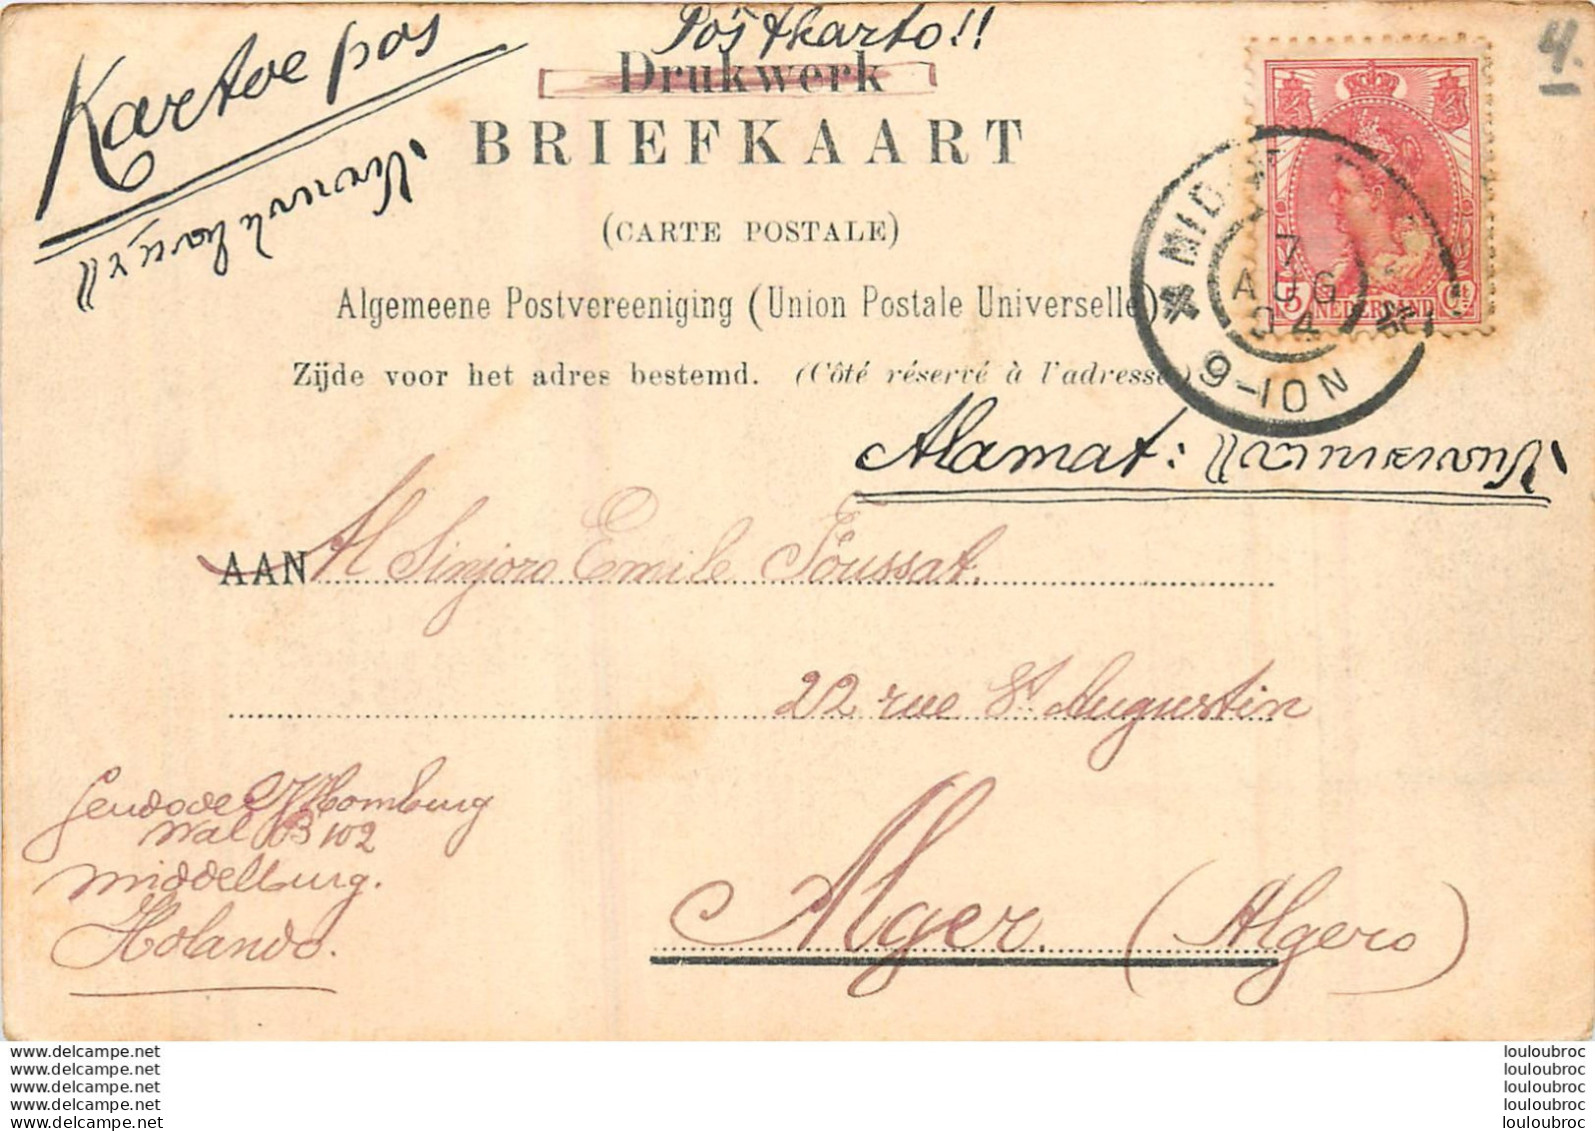 Kartoe pos
Postkarto!!
Drukwerk
4.
BRIEFKAART
(CARTE POSTALE)
Algemeene Postvereeniging (Union Postale Universelle)
Zijde voor het adres bestemd. (Côté réservé à l'adresse)
NEDERLAND
7
AUG
04
9-10N
Alamat:
AAN Al Sinjoro Emile Foussat.
22 rue St Augustin
Alger. (Algero)
Homburg
Wal B 102
Middelburg.
Holando.
www.delcampe.net
www.delcampe.net
www.delcampe.net
www.delcampe.net
www.delcampe.net
louloubroc
louloubroc
louloubroc
louloubroc
louloubroc